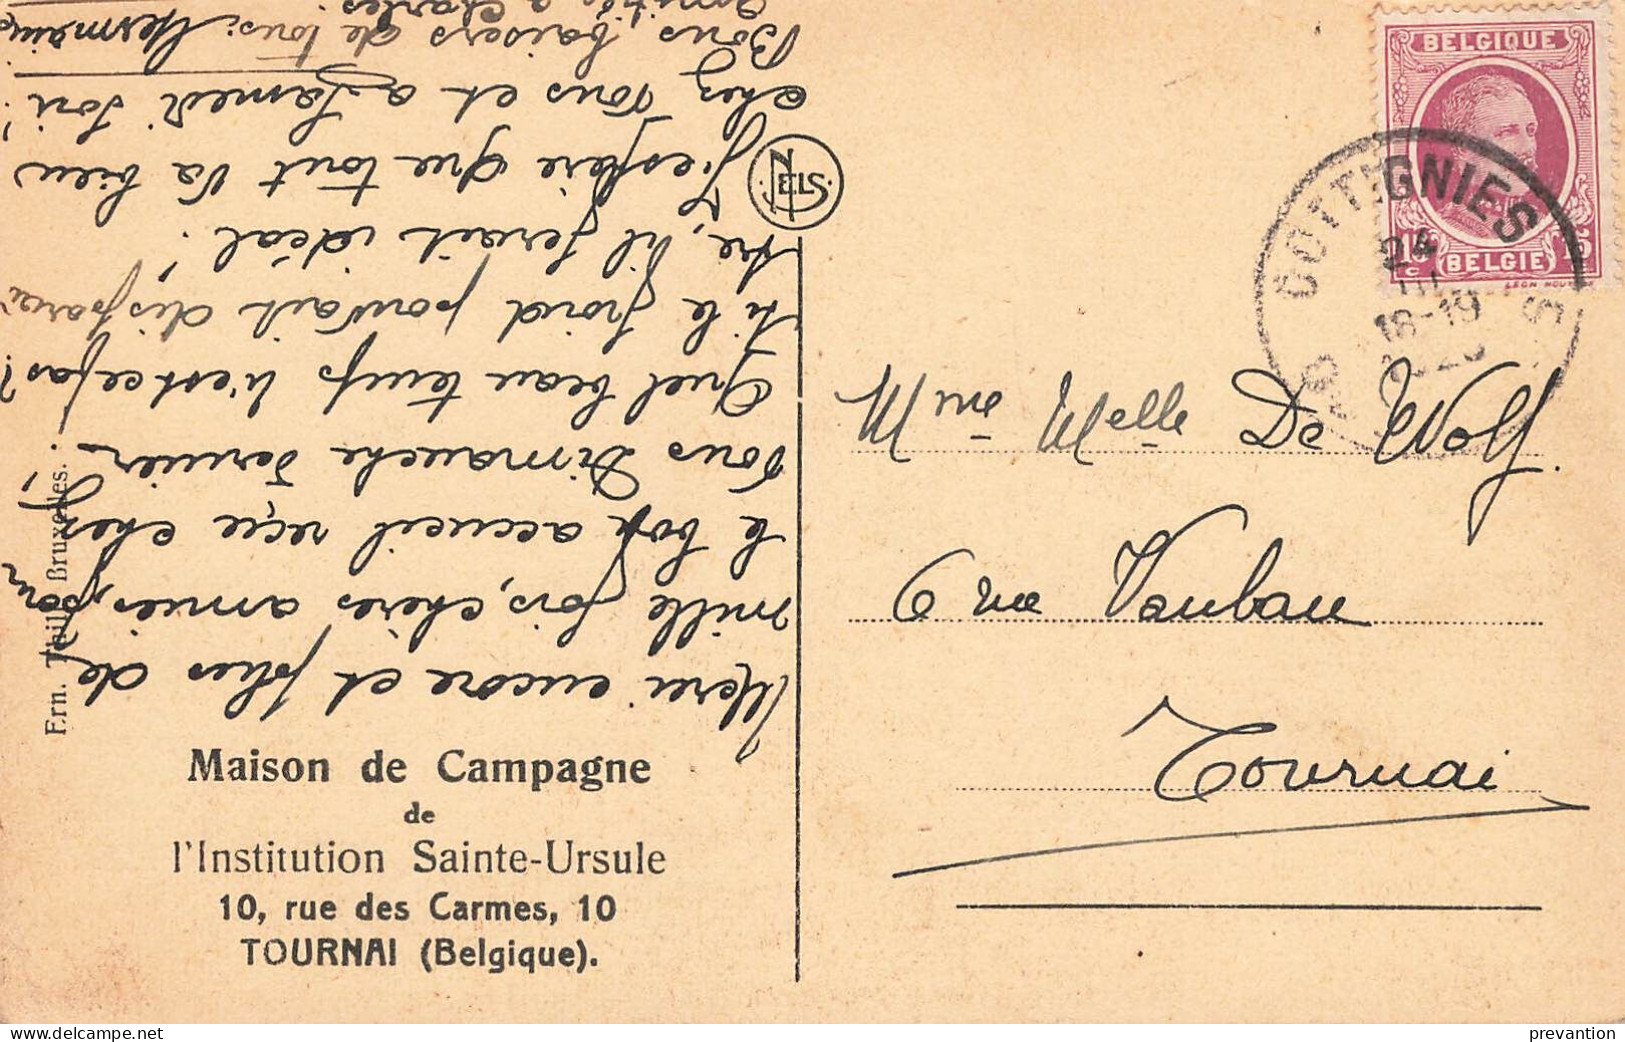 Merci encore et plus de
mille fois, chères amies, pour
le bon accueil reçu chez
vous Dimanche dernier.
Quel beau temps n'est ce pas?
Si le froid pouvait disparai
tre, il ferait idéal!
J'espère que tout va bien
chez vous et a Samedi soir!
Bons baisers de tous: Germaine
Amitiés à Charles
Maison de Campagne
de
l'Institution Sainte-Ursule
10, rue des Carmes, 10
TOURNAI (Belgique).
Ern. Thill, Bruxelles.
NELS
BELGIQUE
15 c BELGIE 15
GOTTIGNIES
24
18-19
Mme Melle De Wolf.
6 rue Vauban
Tournai
delcampe.net
prevantion